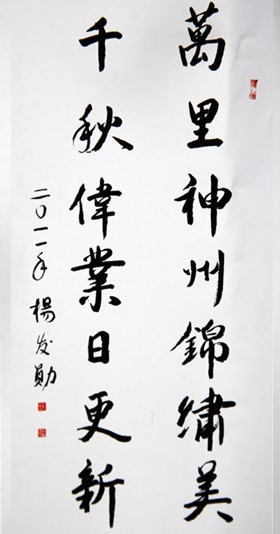 萬里神州錦繡美
千秋偉業日更新
二〇一一年 楊发勛